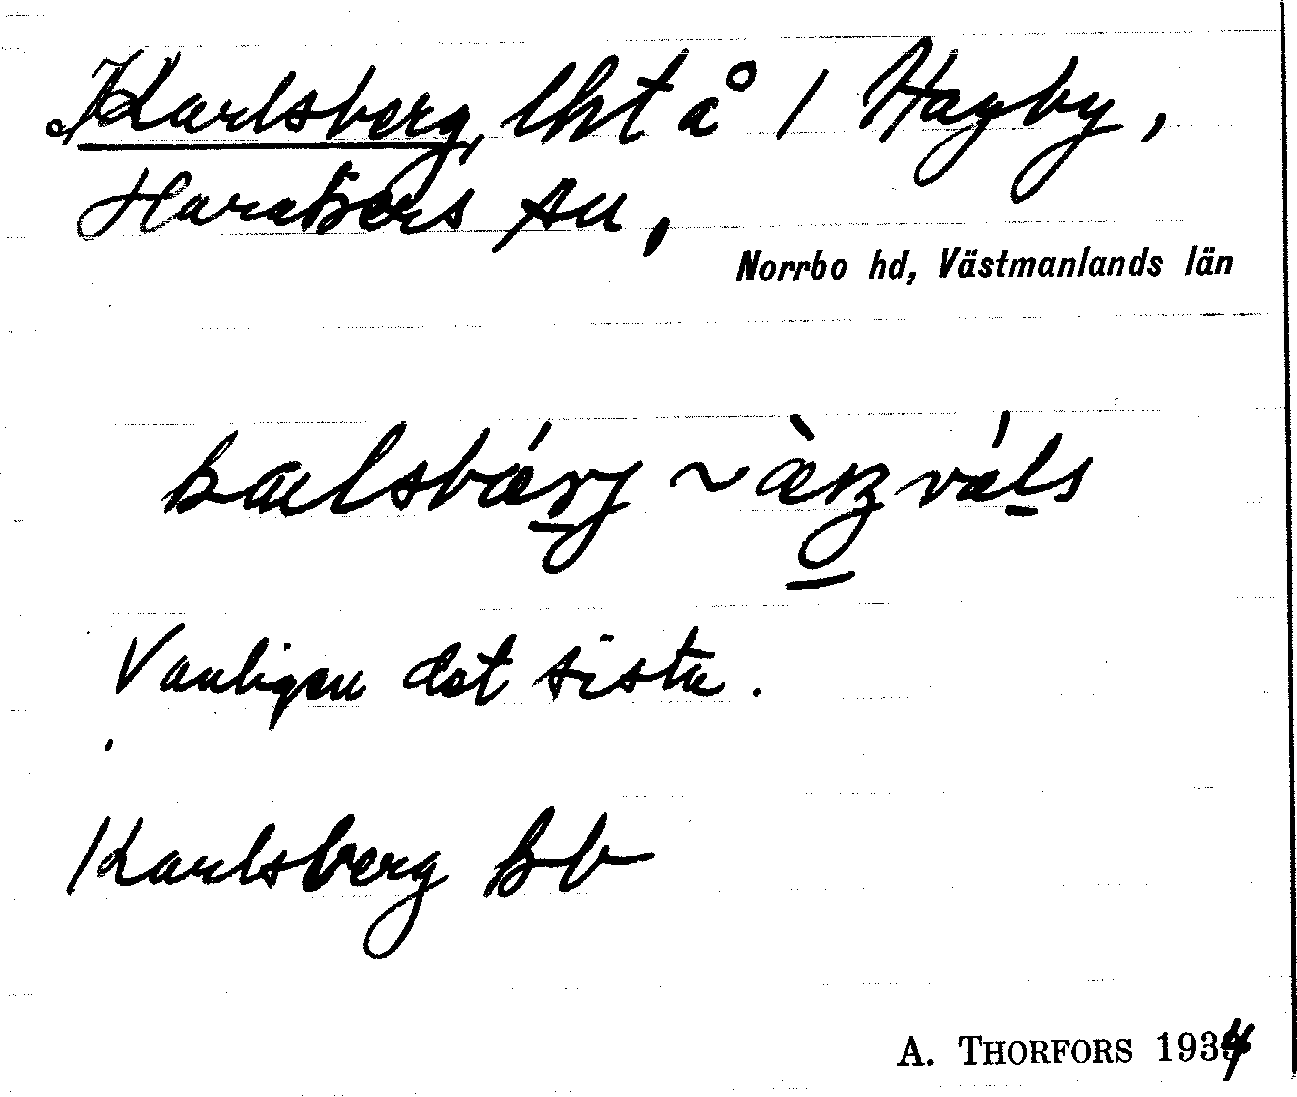 Karlsberg, lht å 1 Hagby,
Harakers sn,
Norrbo hd, Västmanlands län
Vanligen det sista.
Karlsberg Bb
A. THORFORS 1934